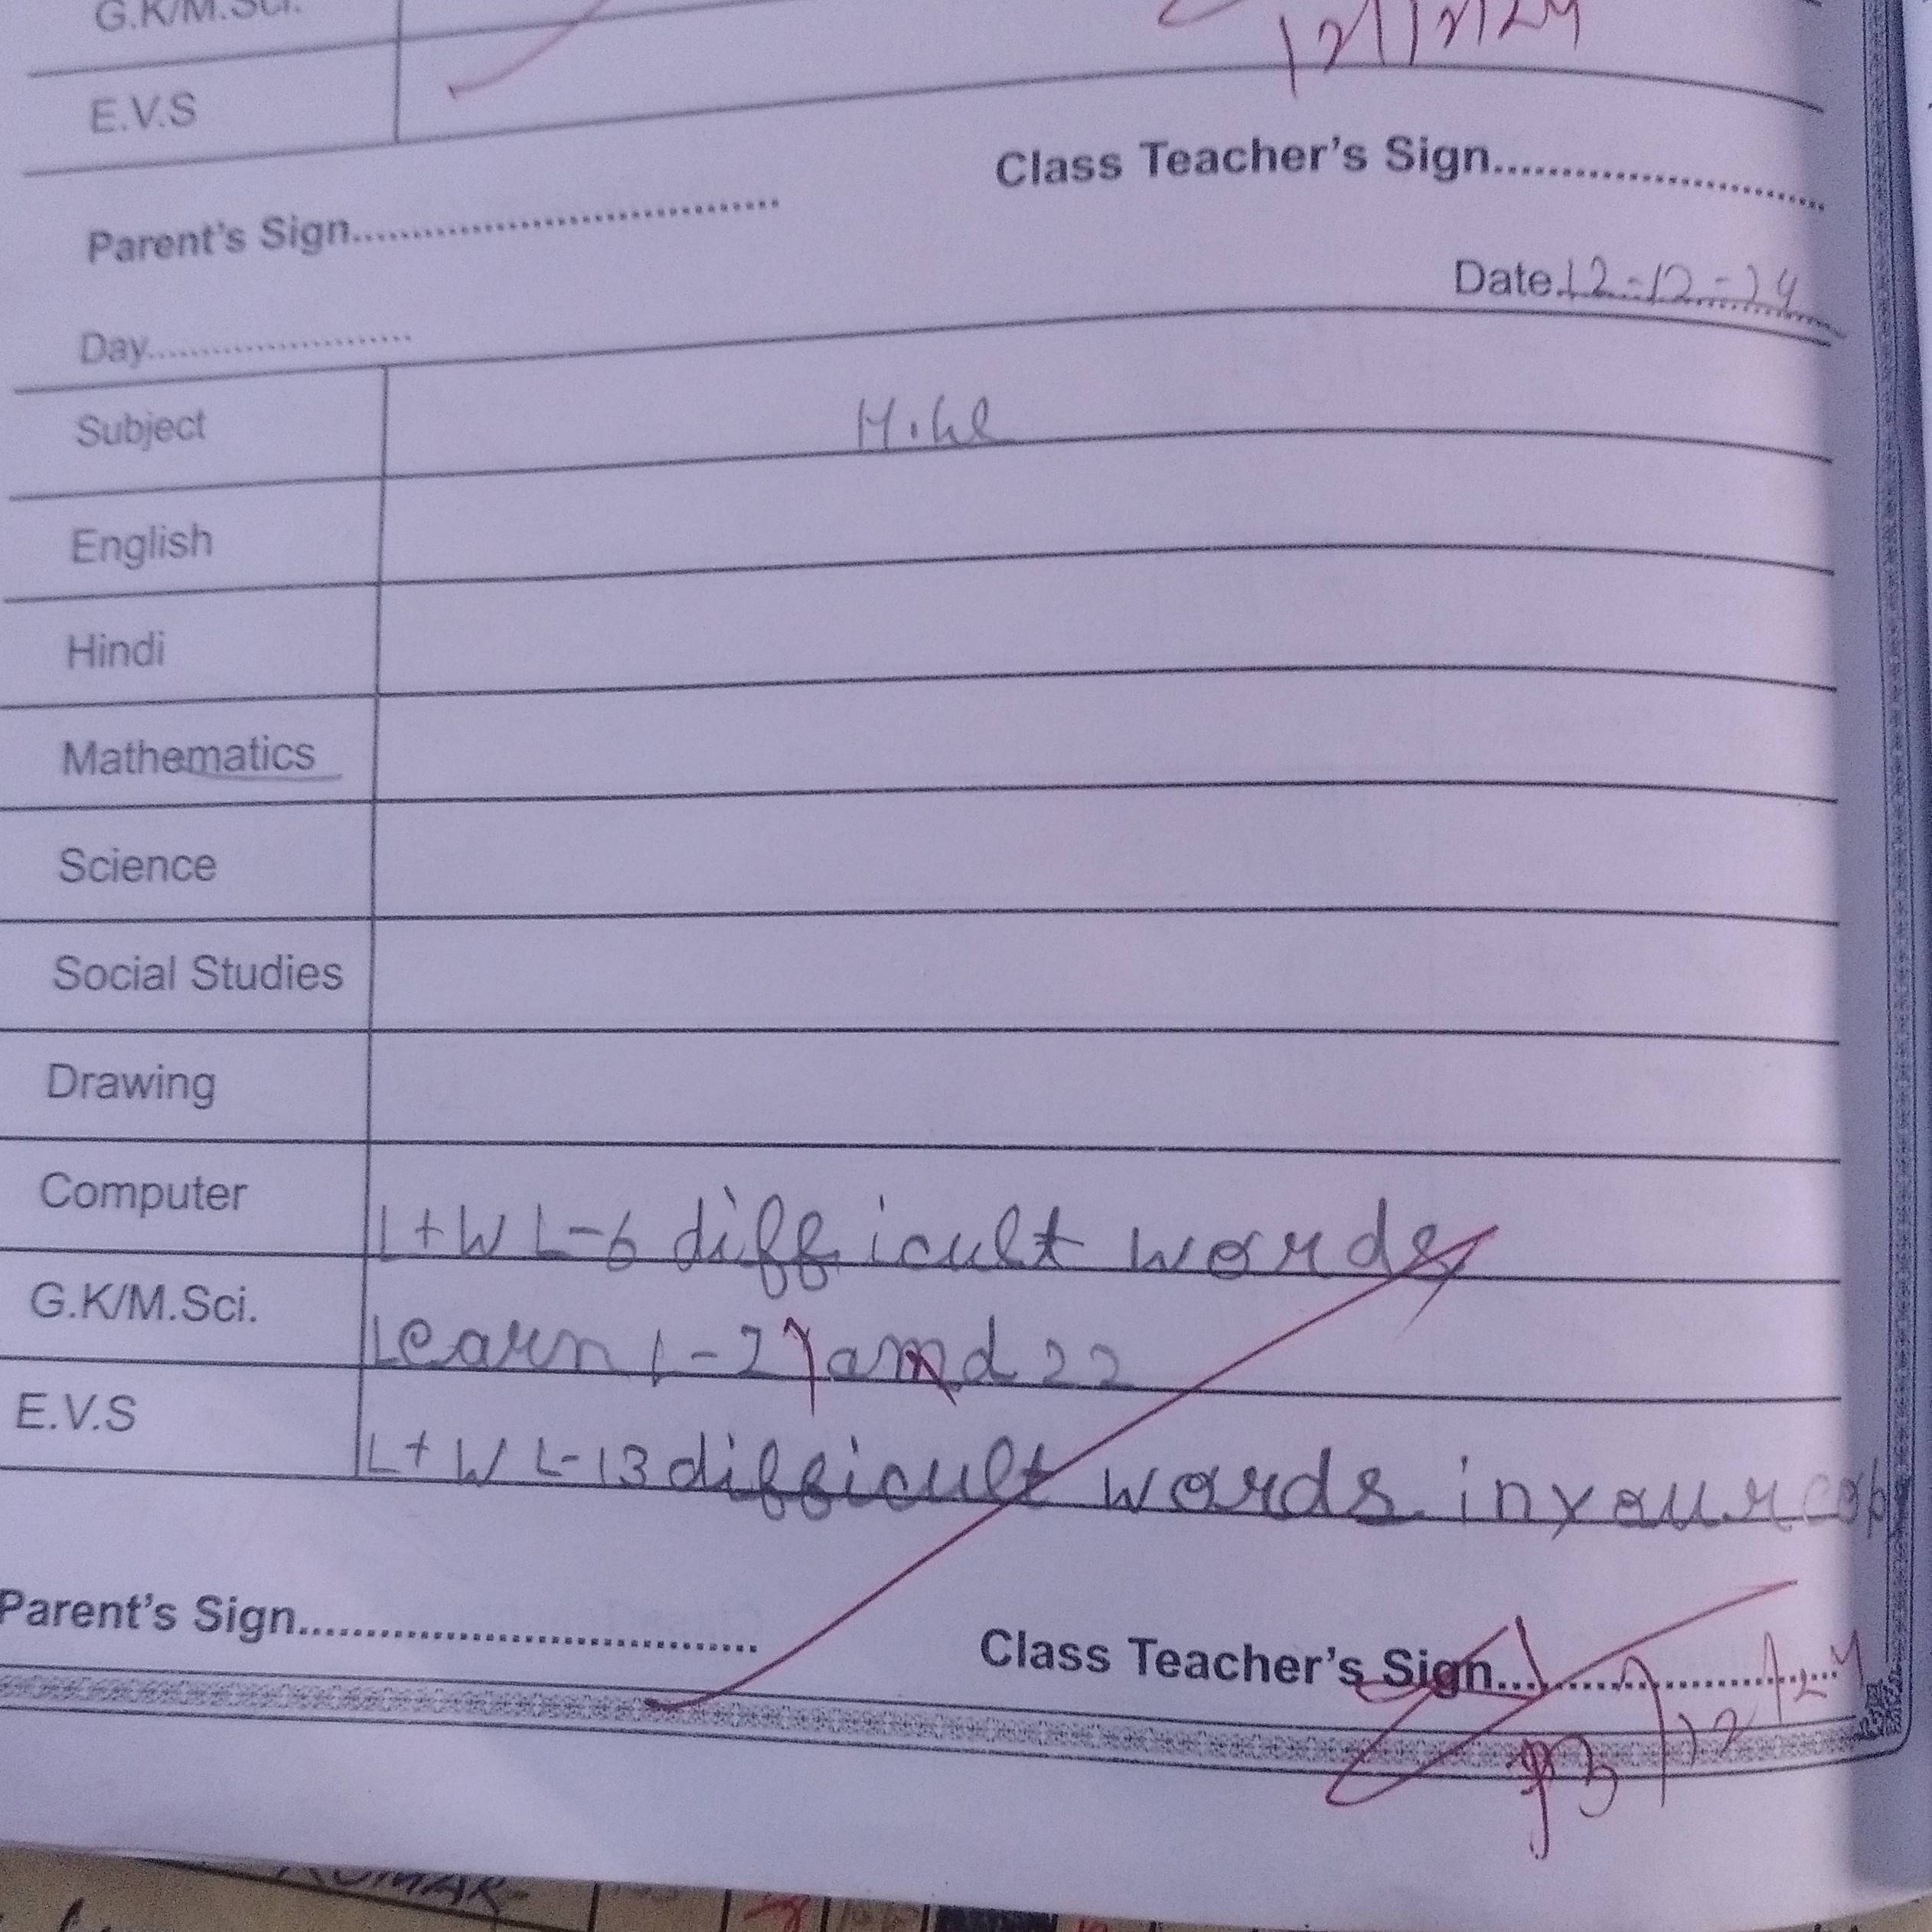 G.K/M.Sci.
12/12/24
E.V.S
Class Teacher's Sign..............................
Parent's Sign..............................
Date 12-12-24
Day......................
Subject H.W
English
Hindi
Mathematics
Science
Social Studies
Drawing
Computer L+W L-6 difficult words
G.K/M.Sci. Learn L-21 and 22
E.V.S L+W L-13 difficult words in your cop
Parent's Sign..............................
Class Teacher's Sign..............................
13/12/24
KUMAR